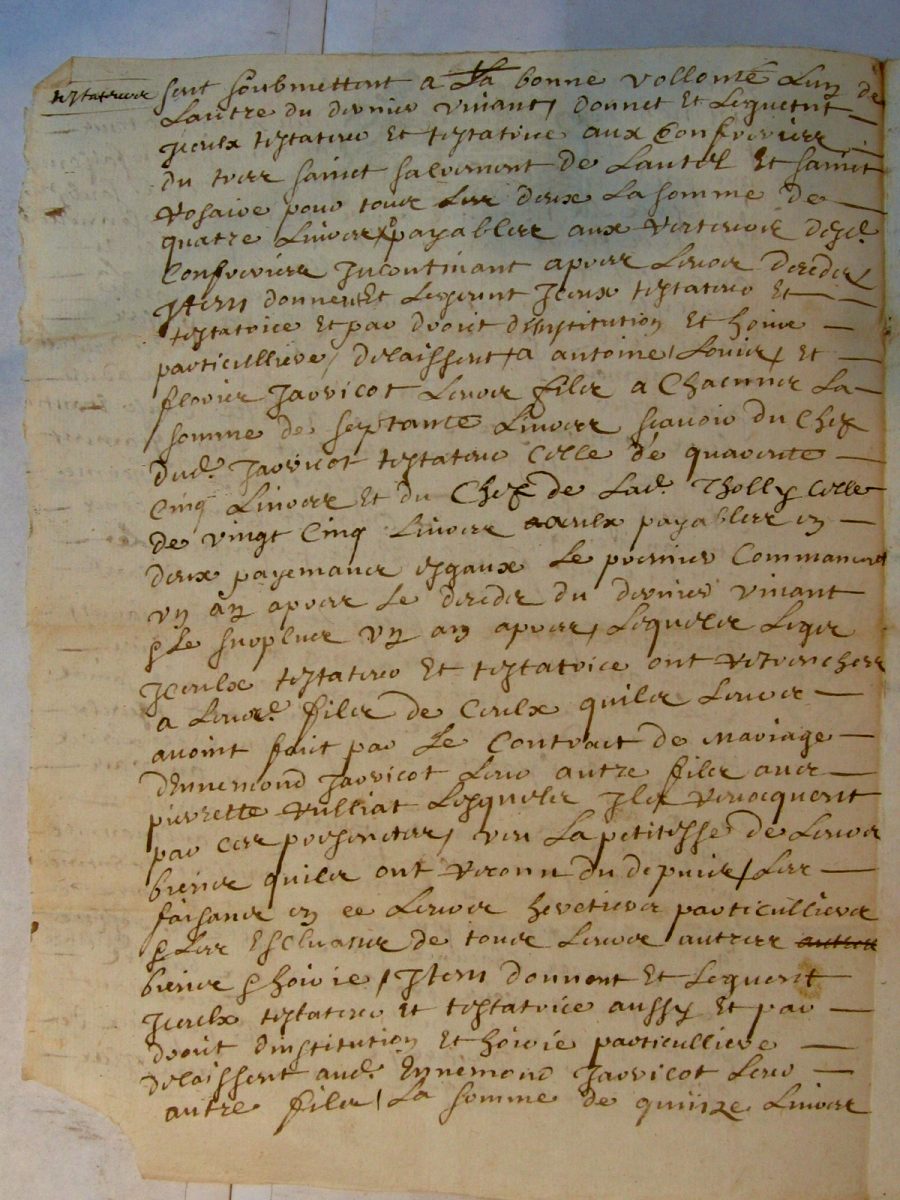 testateurs sont soubmettent a la bonne vollonté Lung de
Lautre du dernier vivant, donnet Et Leguent
Jceulx testateurs Et testatrice aux Confreries
du tres sainct sacrement de Lautel Et sainct
Rosaire pour tous Les deux La somme de
quatre Livres payables aux Recteurs desd.
Confreries Jncontinant apres Leurs decedz
Jtem donnent Et Leguent Jceux testateurs Et
testatrice Et par droict dinstitution Et hoirie
particulliere, delaissent, a antoine, Louis, Et
flories Jarricot Leurs filz a Chacungs La
somme de septante Livres scavoir du Chef
dud. Jarricot testateur Celle de quarente
Cinq Livres Et du Chef de Lad. Tholly Celle
de vingt Cinq Livres payables en
deux payemans esgaux Le premier Commancent
un an apres Le decedz du dernier vivant
& Le surplus un an apres, Lesquelz Legas
Jceulx testateurs Et testatrice ont retranches
a Leursd. filz de Ceulx quilz Leurs
avoint faict par Le Contract de Mariage
dEnnemond Jarricot Leur autre filz avec
pierrette Vulliat Lesquelz Jlz revocquent
par Ces presentes, veu La petitesse de Leurs
biens quilz ont reconnu du depuis, Les
faisans en ce Leurs heretiers particulliers
& Les Escluans de tous Leurs autres
biens & hoirie, Jtem donnent Et Leguent
Jceulx testateurs et testatrice aussy Et par
droict dinstitution Et hoirie particulliere
delaissent aud. Ennemond Jarricot Leur
autre filz, La somme de quinze Livres